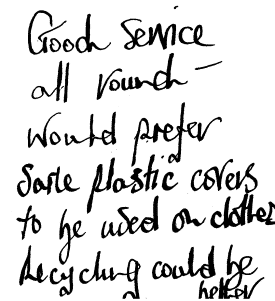 Good service
all round –
Would prefer
Sarle plastic covers
to be used on clothes
Recycling could be
better